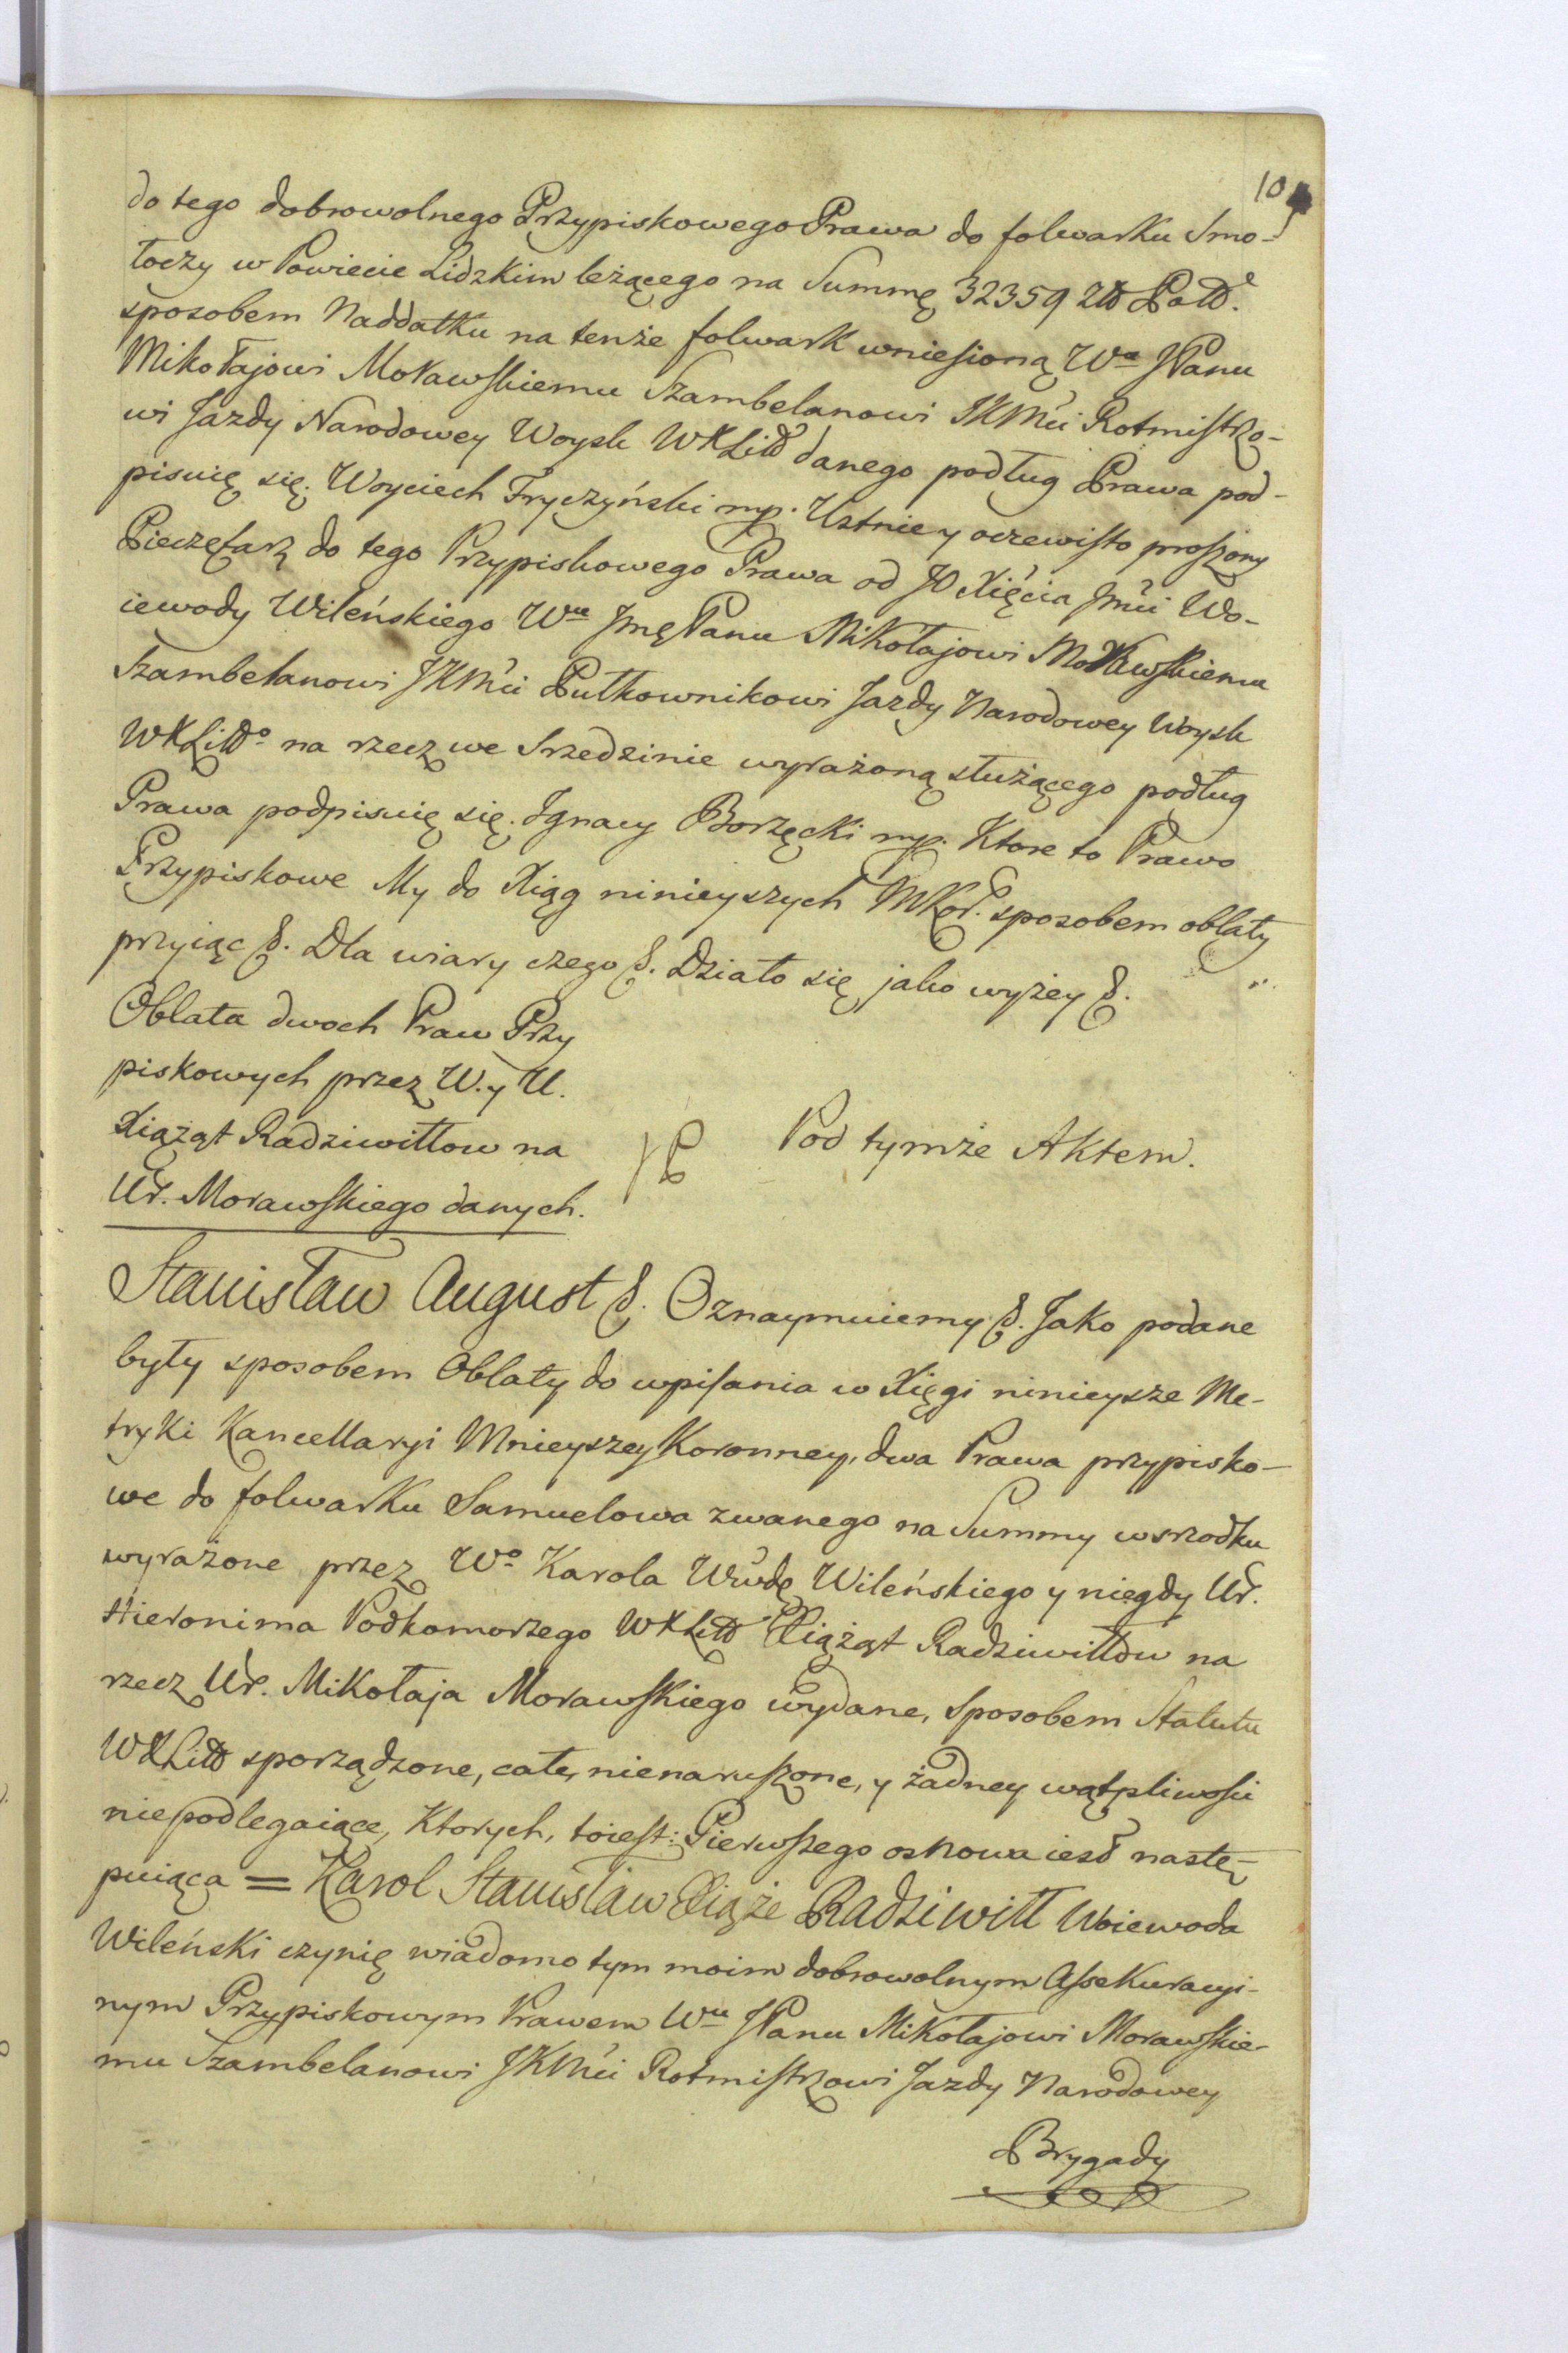 10
do tego dobrowolnego Przypiskowego Prawa do folwarku Smo-
łoczy w Powiecie Lidzkim leżącego na Summę 32359 Złł Poll.
sposobem Naddatku na tenże folwark wniesioną Wu JPanu
Mikołajowi Morawskiemu Szambelanowi JKMci Rotmistrzo-
wi Jazdy Narodowey Woysk WXLitt danego podług Prawa pod-
pisuię się. Woyciech Fryczyński mp. Ustnie y oczewisto proszony
Pieczętarz do tego Przypiskowego Prawa od JO Xięcia Jmci Wo-
iewody Wileńskiego Wu Jmę Panu Mikołajowi Morawskiemu
Szambelanowi JKMci Pułkownikowi Jazdy Narodowey Woysk
WXLitto na rzecz we Srzedzinie wyrażoną służącego podług
Prawa podpisuię się. Ignacy Borzęcki mp. Ktore to Prawo
Przypiskowe My do Xiąg ninieyszych MKor. sposobem oblaty
przyiąc &. Dla wiary czego &. Działo się jako wyżey &.
Oblata dwoch Praw Przy
piskowych przez W. y U.
Xiążąt Radziwiłłow na
Ur. Morawskiego danych.
Pod tymże Aktem.
Stanisław August &. Oznaymuiemy &. Jako podane
były sposobem Oblaty do wpisania w Xięgi ninieysze Me-
tryki Kancellaryi Mnieyszey Koronney, dwa Prawa przypisko-
we do folwarku Samuelowa zwanego na Summy wsrzodku
wyrażone przez Wo Karola Wwdę Wileńskiego y niegdy Ur.
Hieronima Podkomorzego WXLitt Xiążąt Radziwiłłow na
rzecz Ur. Mikołaja Morawskiego wydane, sposobem Statutu
WXLitt sporządzone, całe, nienaruszone, y żadney wątpliwości
niepodlegaiące, Ktorych, toiest: Pierwszego osnowa iest nastę-
puiąca = Karol Stanisław Xiąże Radziwiłł Woiewoda
Wileński czynię wiadomo tym moim dobrowolnym Assekuracyi-
nym Przypiskowym Prawem Wu JPanu Mikołajowi Morawskie-
mu Szambelanowi JKMci Rotmistrzowi Jazdy Narodowey
Brygady